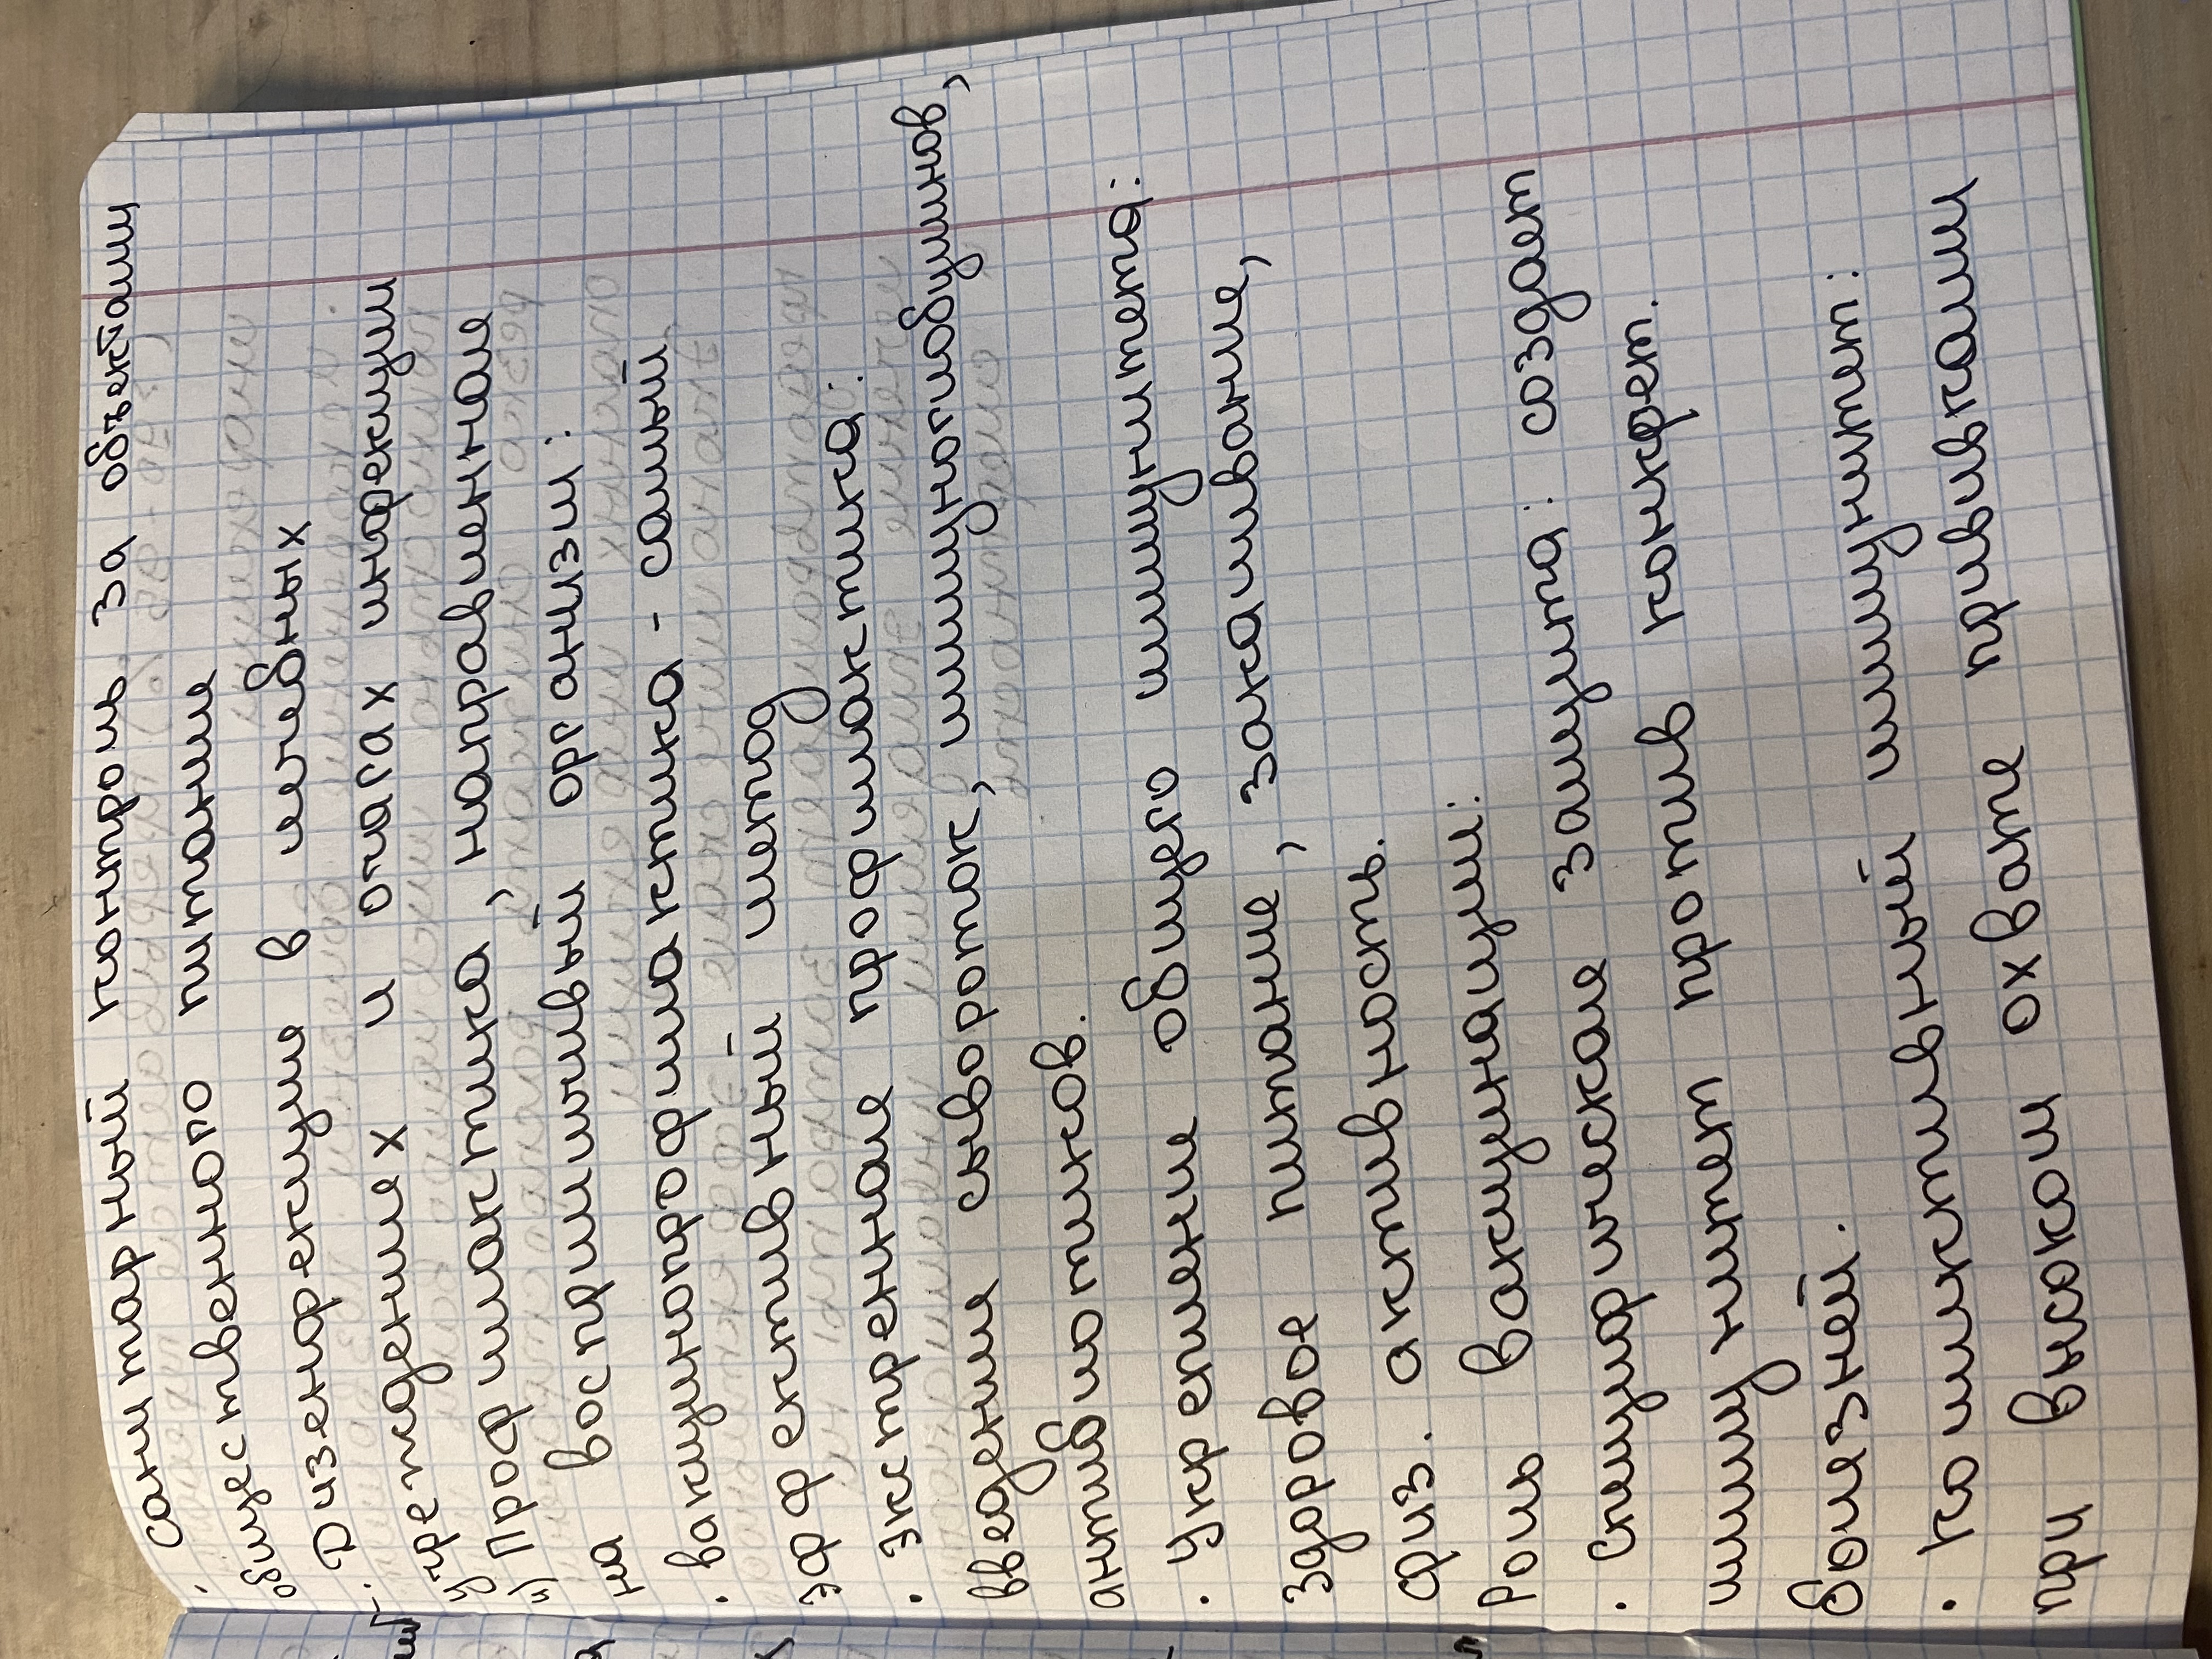 · санитарный контроль за объектами
общественного питание
· Дизенфрекцие в лечебных
учреждениех и очагах инфрекции
4) Профилактика, направленная
на восприимчивый организм:
· вакцинопрофилактика - самый
эффективный метод
· экстренная профилактика:
введение сывороток, иммуноглобулинов,
антибиотиков.
· Укрепление общего иммунитета:
здоровое питание, закаливание,
физ. активность.
Роль вакцинации:
· Специфическая защита: создает
иммунитет против конкрет.
болезней.
· коллективный иммунитет:
при высоком охвате прививками